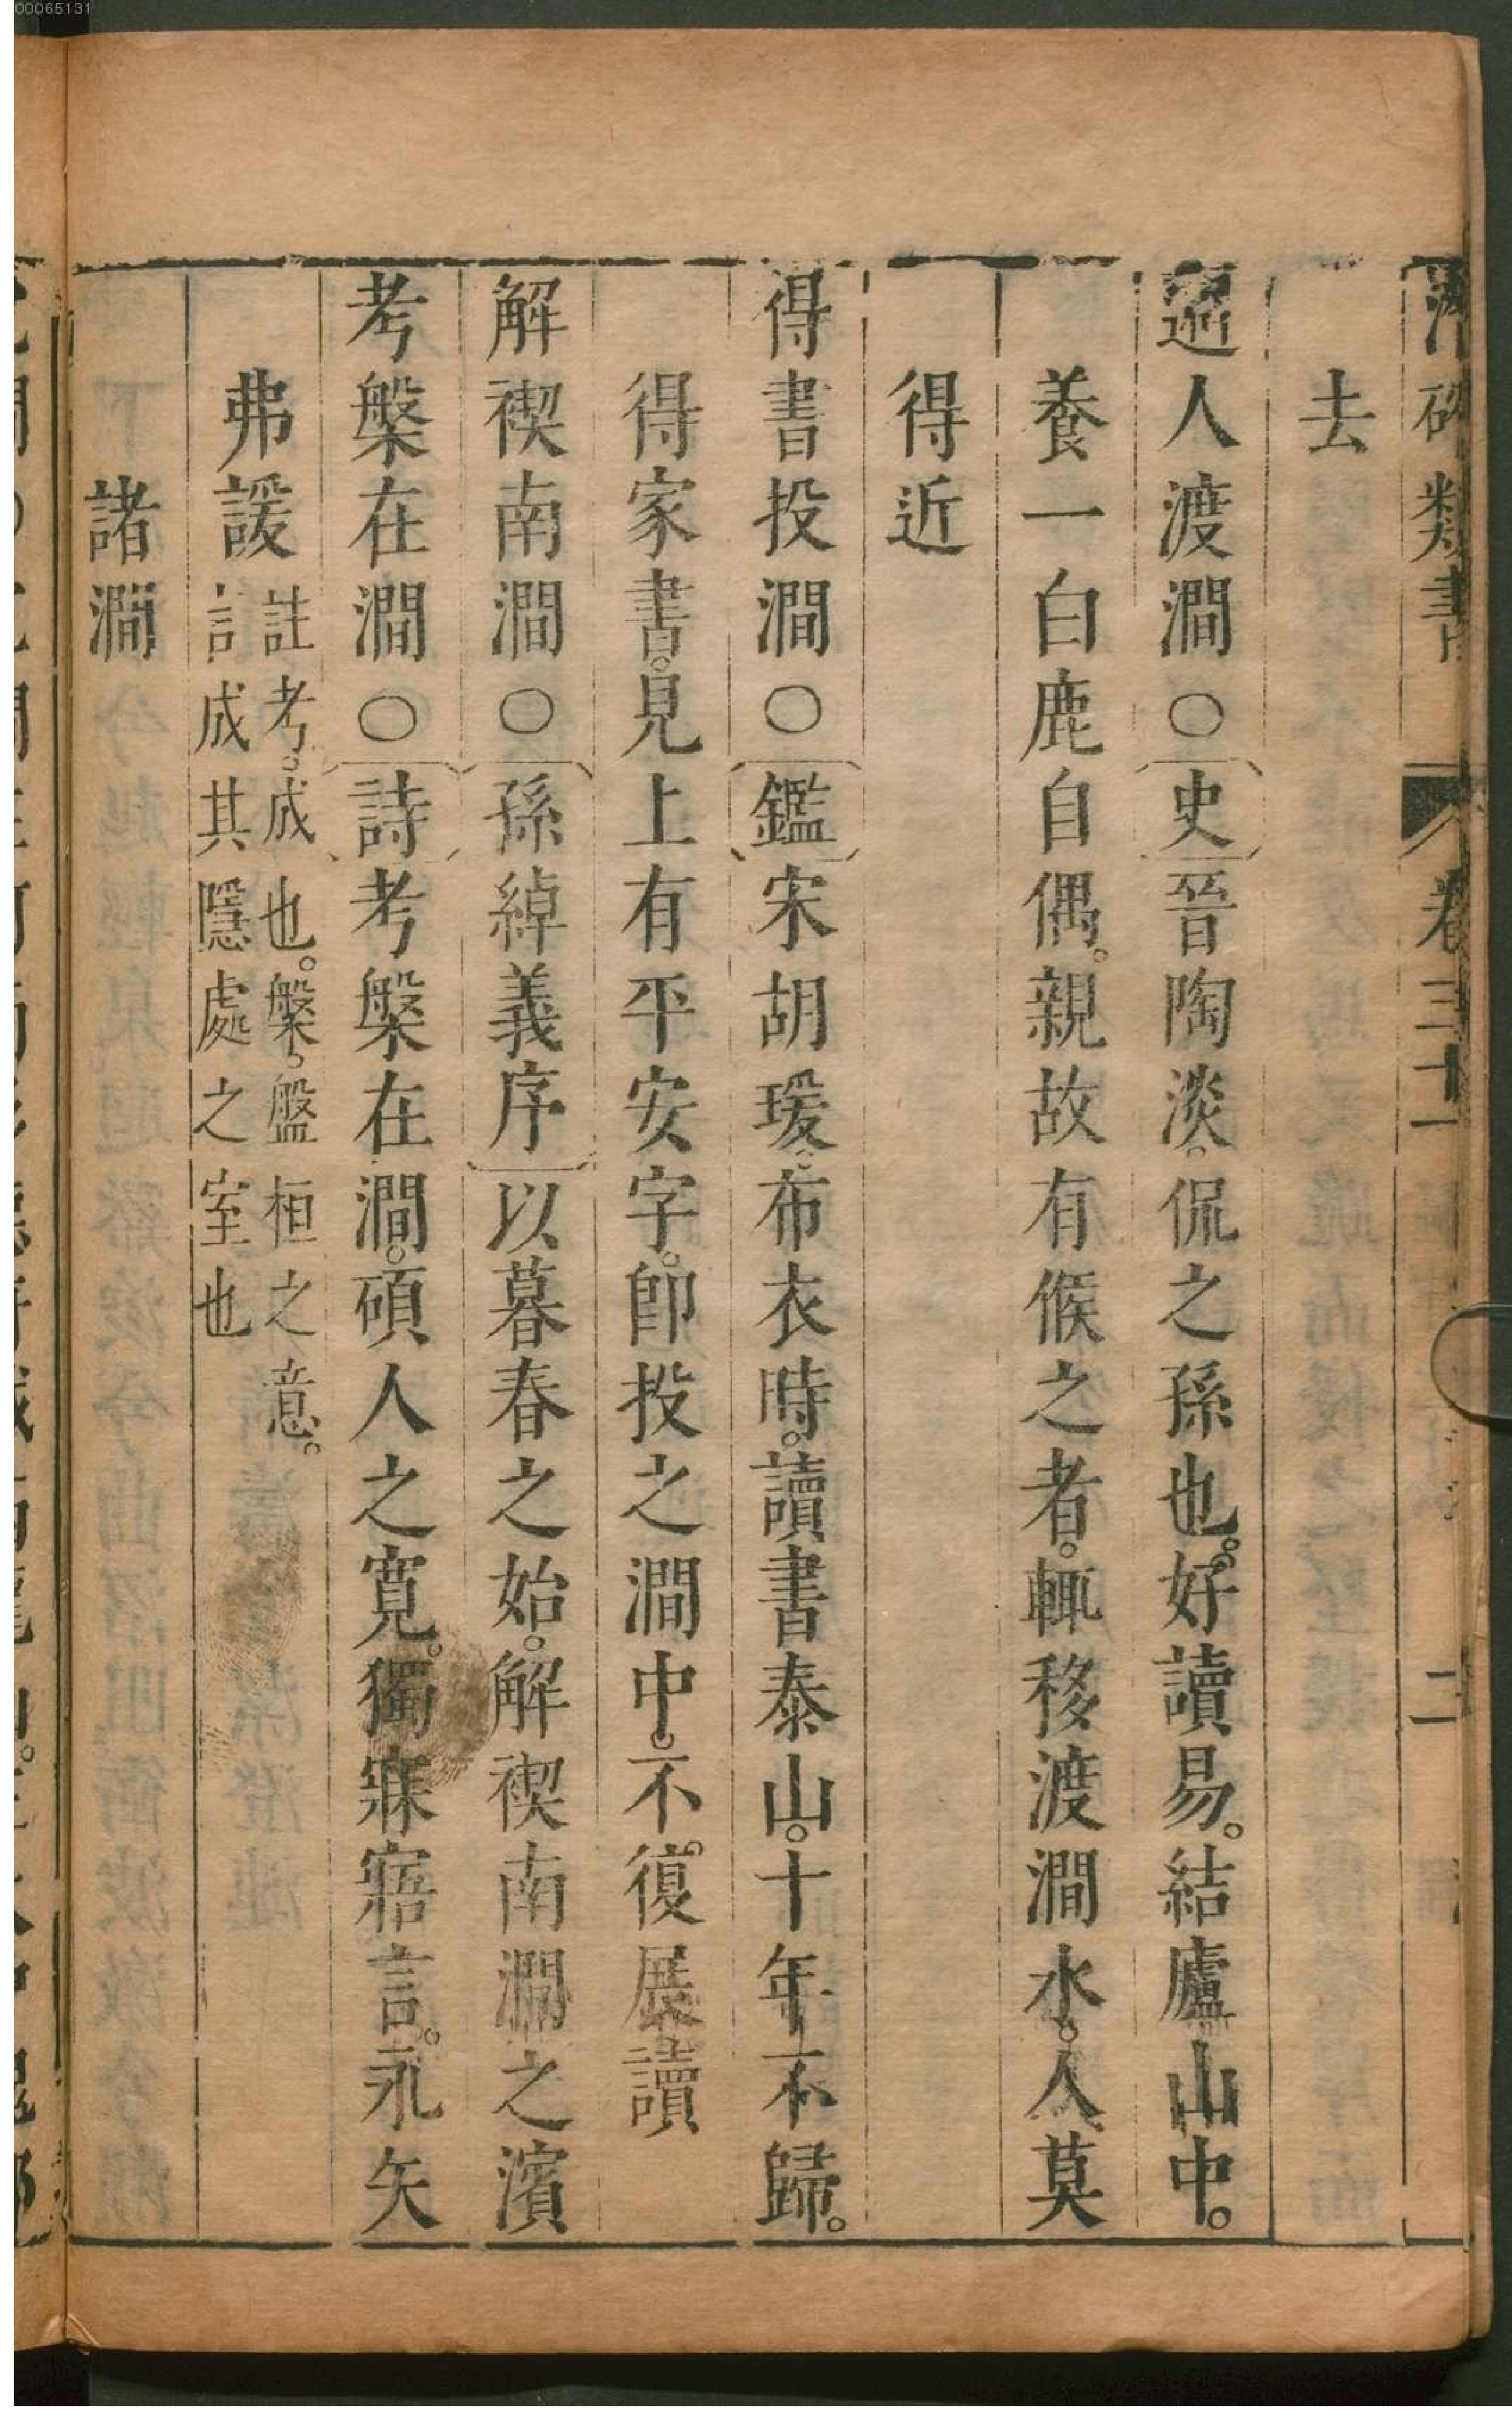 00065131
類書 卷三十一 二
去
人渡澗○史晉陶淡。侃之孫也。好讀易。結廬山中。
養一白鹿自偶。親故有候之者。輒移渡澗水。人莫
得近
得書投澗○鑑宋胡瑗。布衣時。讀書泰山。十年不歸。
得家書。見上有平安字。卽投之澗中。不。復展讀
解禊南澗○孫綽義序以暮春之始。解禊南澗之濱
考槃在澗○詩考槃在澗。碩人之寬。獨寐寤言。永矢
弗諼註考。成也。槃。盤桓之意。
言成其隱處之室也
諸澗